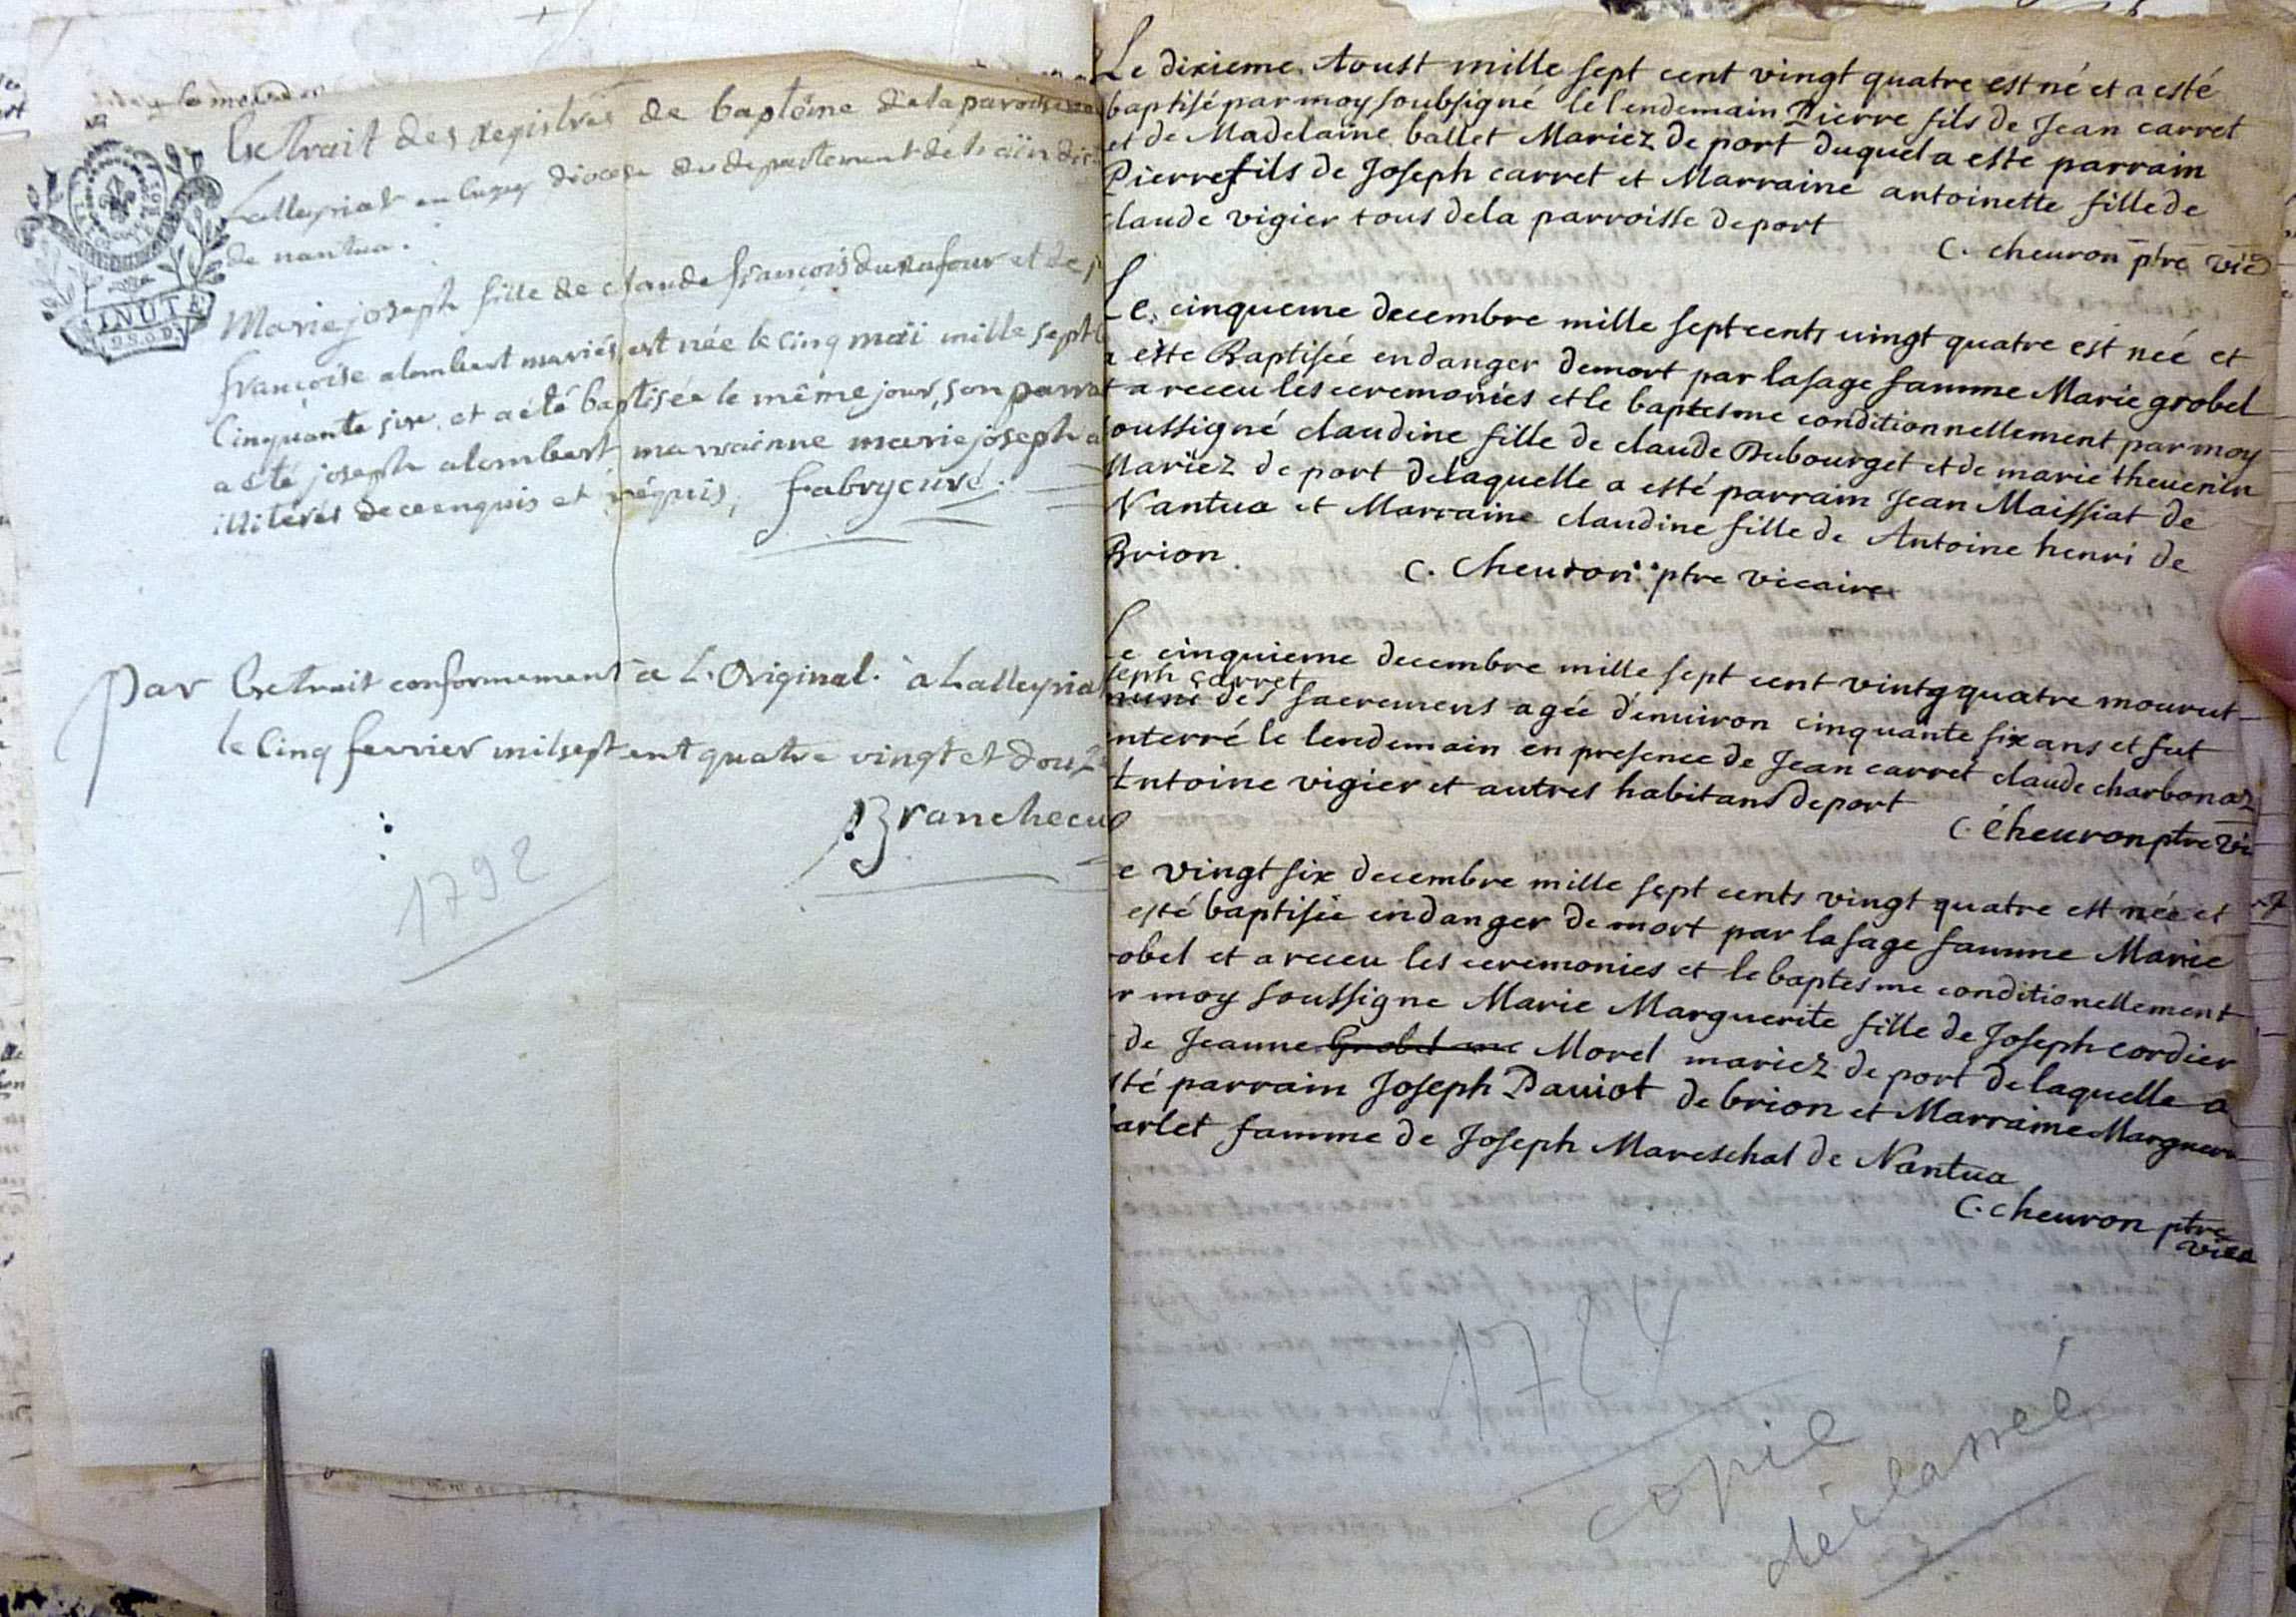 Extrait des registres de baptême dela paroisse
Lalleyriat en bugey diocese du departement de l'aïn
de nantua.
MINUTE
Marie joseph fille de claude françois durafour et de
françoise alombert mariés, est née le cinq maï mille sept
Cinquante six, et a été baptisée le même jour, son parra
a été joseph alombert, marrainne marie joseph a
illiterés de ce enquis et réquis, fabry curé.
Par Extrait conformement à L'Original. à Lalleyriat
le Cinq fevrier mil sept cent quatre vingt et douze
Branche cu
1792
Le dixieme Aoust mille sept cent vingt quatre est né et a esté
baptisé par moy soubsigné le lendemain Pierre fils de Jean carret
et de Madelaine ballet Mariez de port duquel a esté parrain
Pierre fils de Joseph carret et Marraine antoinette fille de
claude vigier tous dela parroisse de port
C. cheuron ptre vic
Le cinqueme decembre mille sept cents uingt quatre est neé et
a esté Baptisée en danger demort par la sage famme Marie grobel
et a receu les ceremonies et le baptesme conditionnellement par moy
soussigné claudine fille de claude Dubourget et de marie theuenin
Mariez de port delaquelle a esté parrain Jean Maissiat de
Nantua et Marraine claudine fille de Antoine henri de
Brion.
C. Cheuron ptre viccaire
Le cinquieme decembre mille sept cent vintg quatre mourut
seph carret
muni des sacremens agée d'enuiron cinquante six ans et fut
enterré le lendemain en presence de Jean carret claude charbonaz
Antoine vigier et autres habitans de port
C. Cheuron ptre vi
e vingt six decembre mille sept cents vingt quatre est née et
esté baptisée en danger de mort par la sage famme Marie
obel et a receu les ceremonies et le baptesme conditionellement
r moy soussigne Marie Marguerite fille de Joseph cordier
de Jeanne Grobel Morel mariez de port delaquelle a
sté parrain Joseph Dauiot de brion et Marraine Marguer
arlet famme de Joseph Mareschal de Nantua
C. cheuron ptre
vica
1724
copie
déclassée